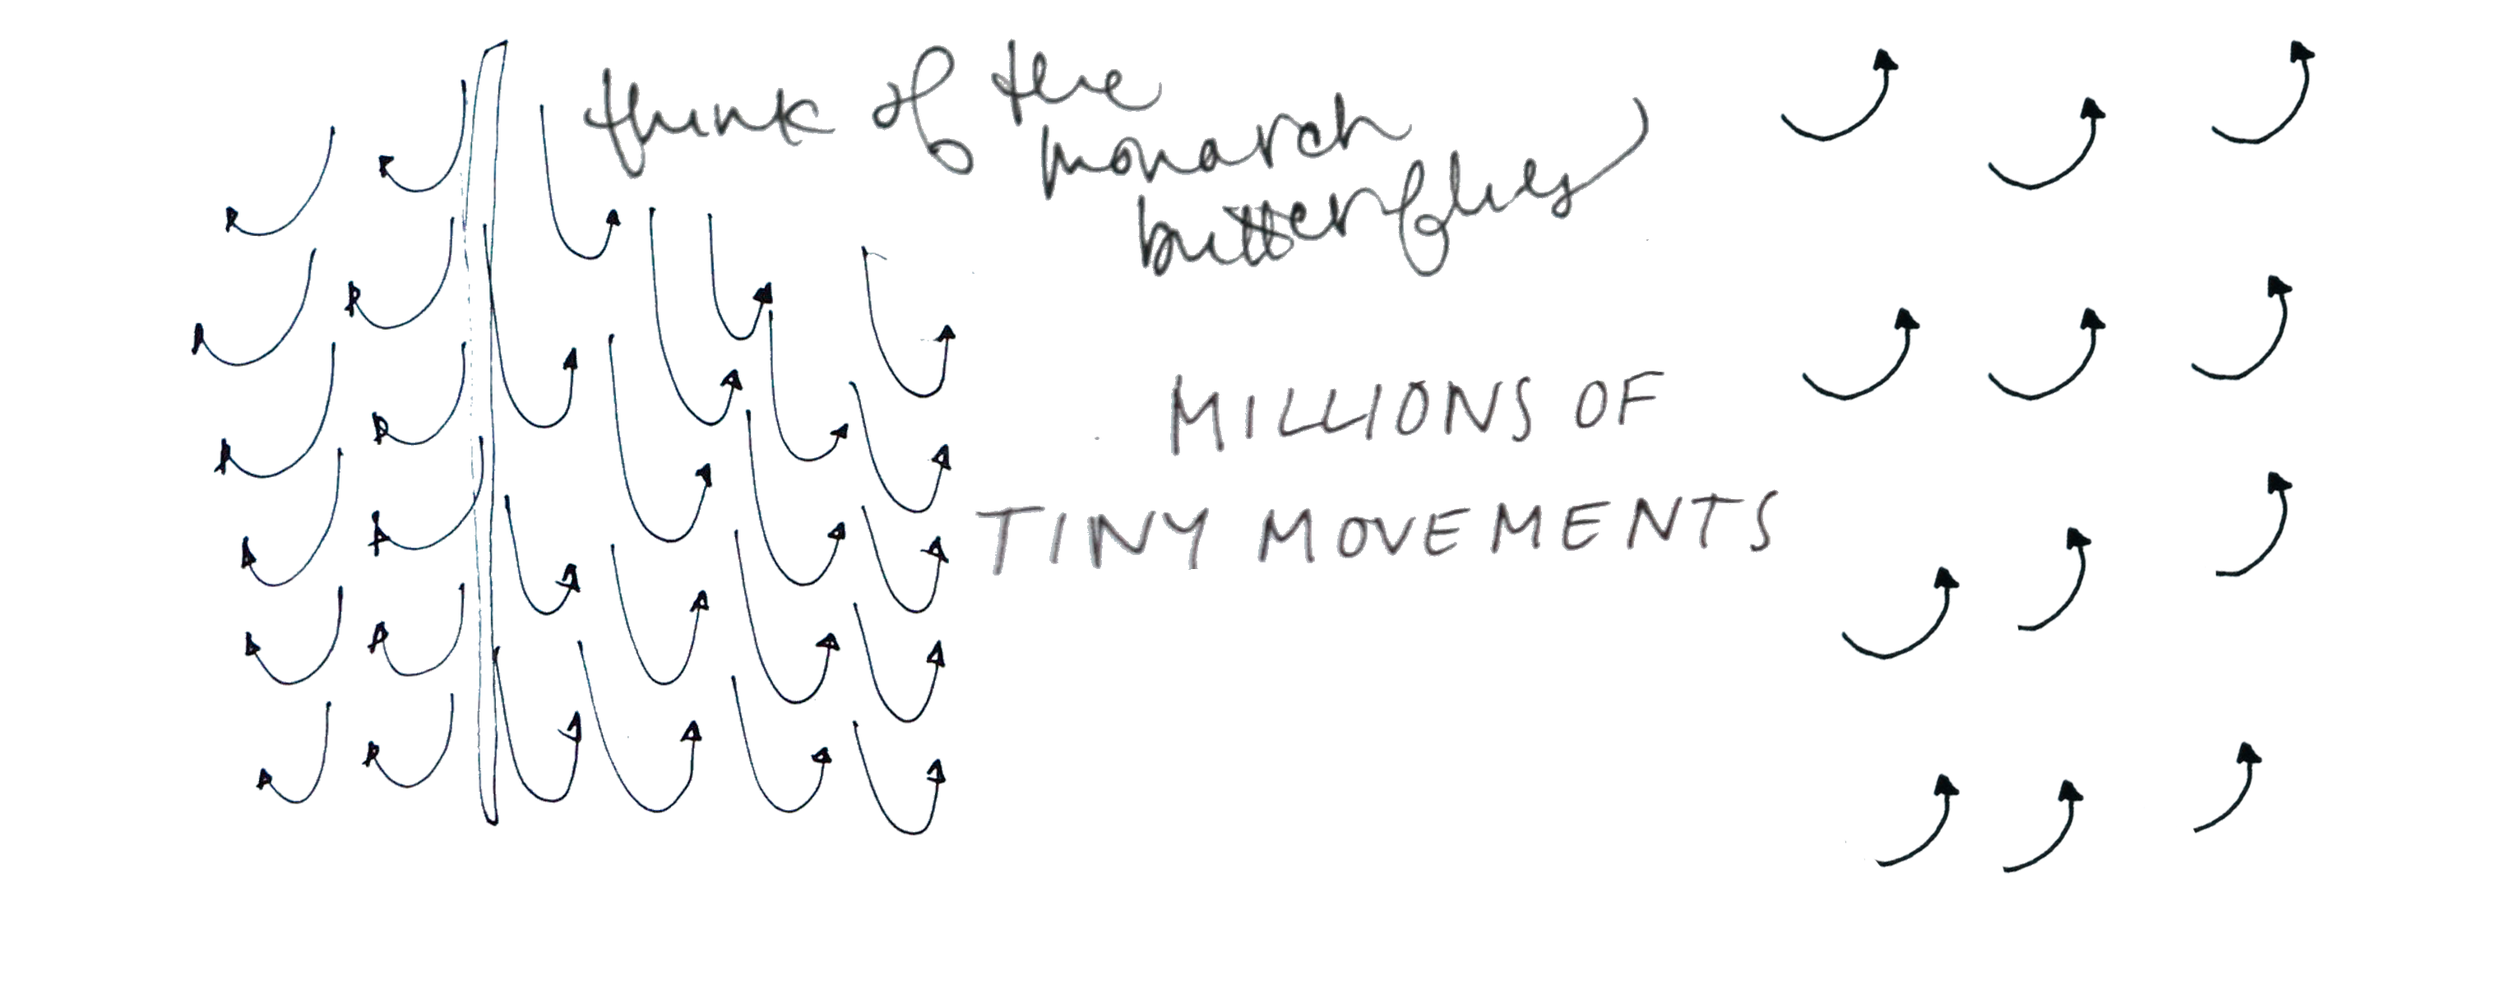 think of the
monarch
butterflies
MILLIONS OF
TINY MOVEMENTS